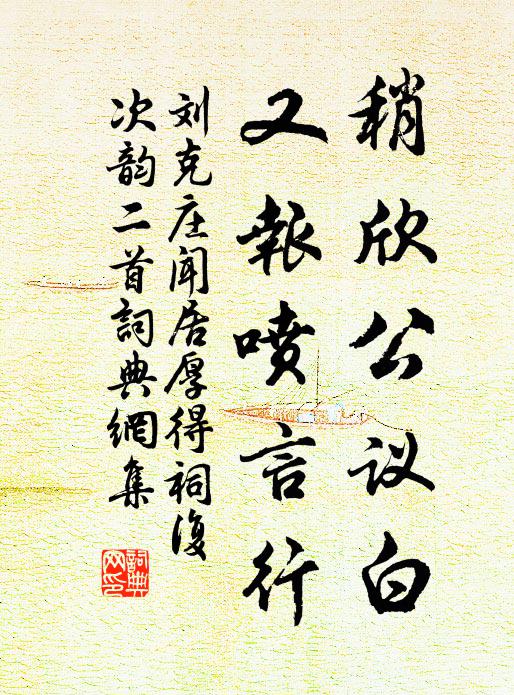 稍欣公议白
又報喷言行
刘克庄闻居厚得祠復
次韵二首詞典網集
詞典网印